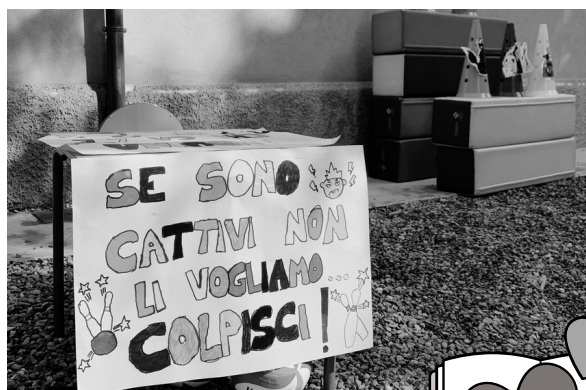 SE SONO
CATTIVI NON
LI VOGLIAMO...
COLPISCI!